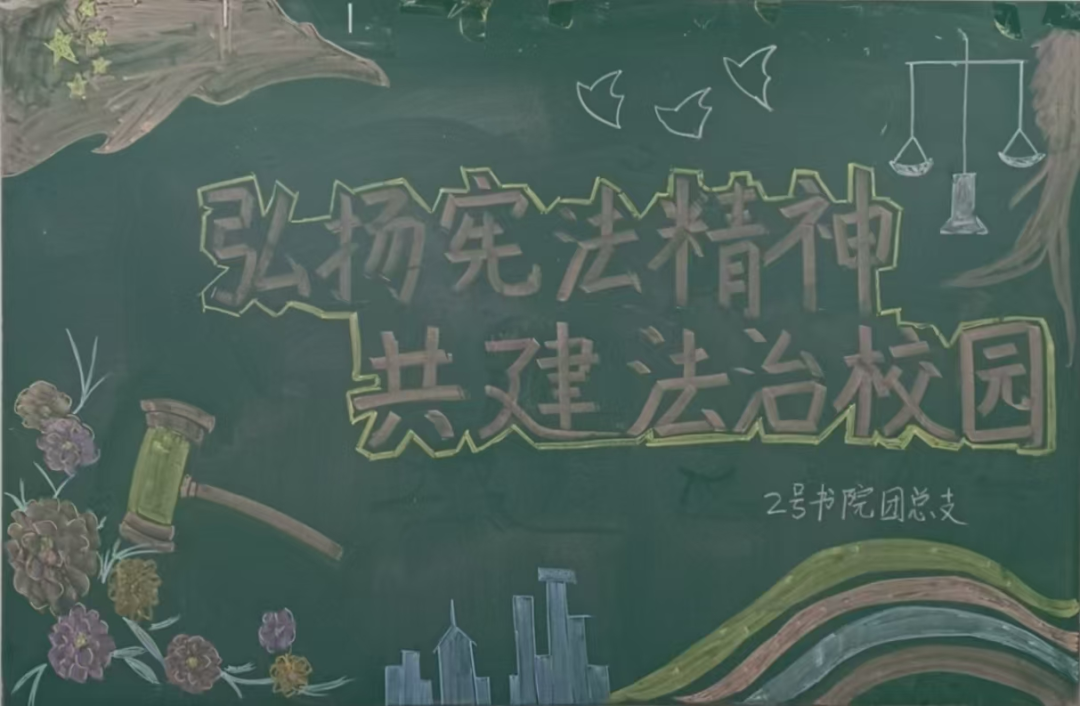 弘扬宪法精神
共建法治校园
2号书院团总支